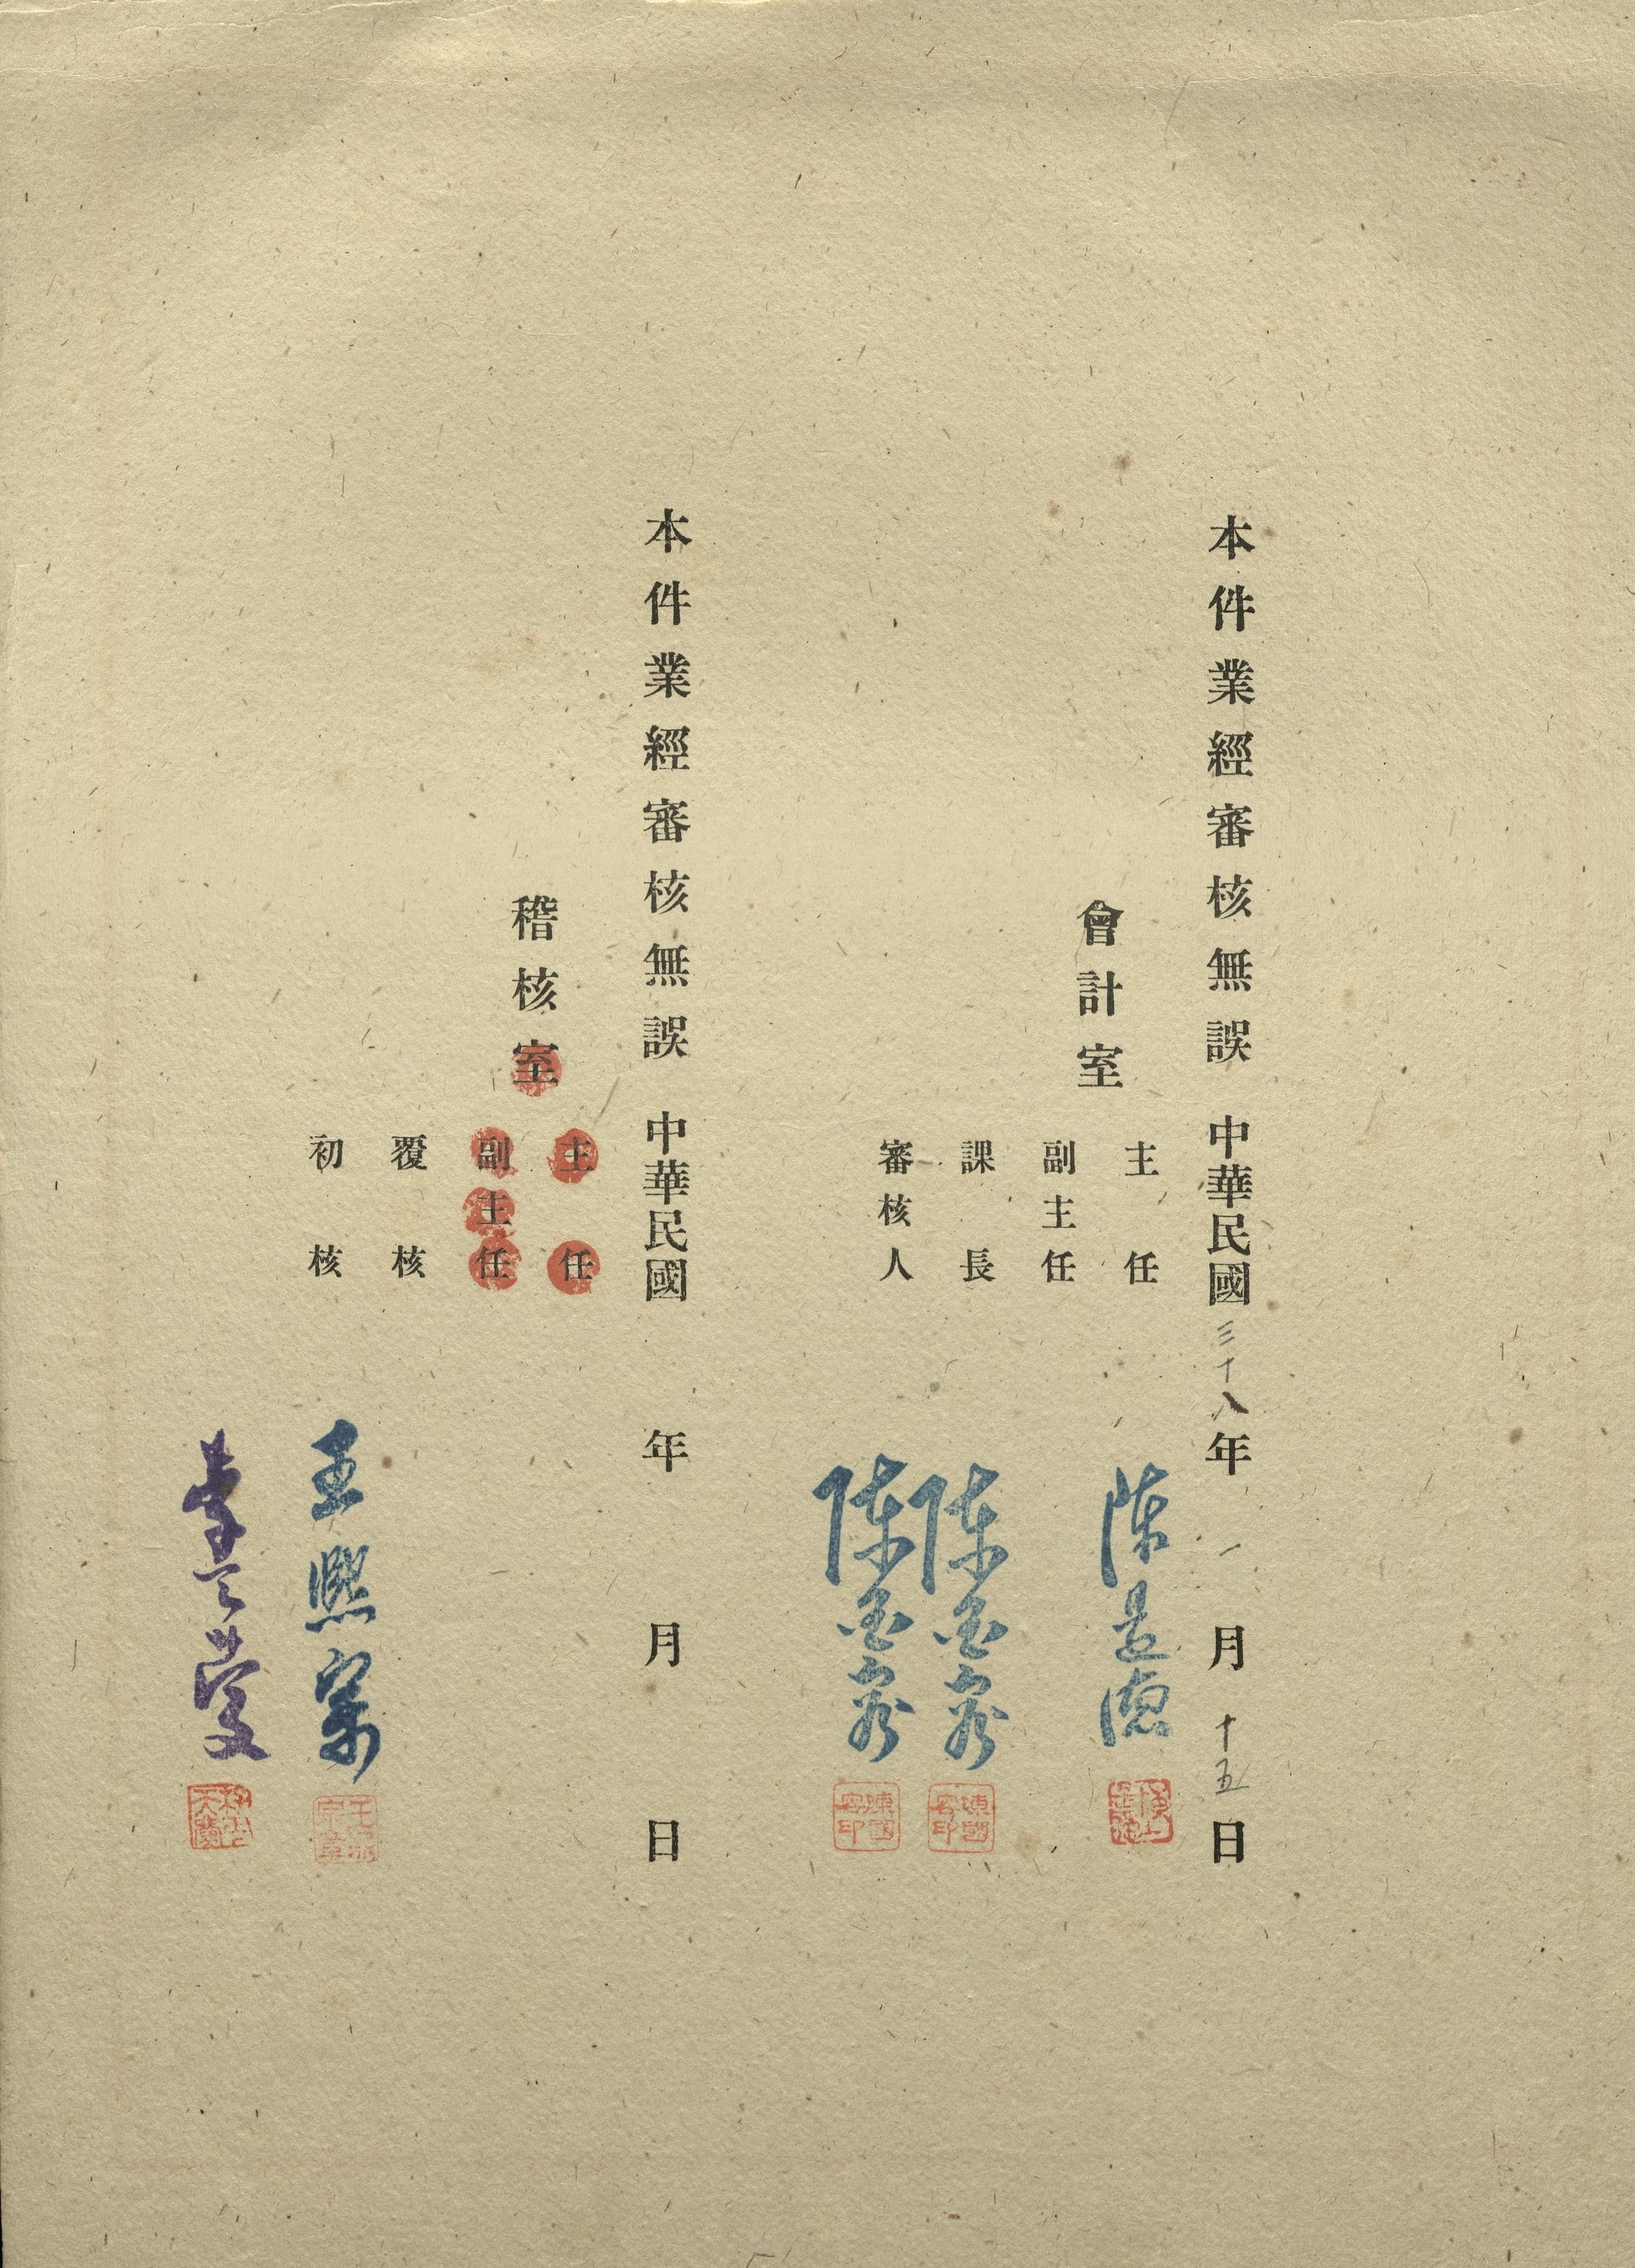 本件業經審核無誤 中華民國三十八年一月十五日
會計室
主任 陳是德
副主任
課長 陳国容
審核人 陳国容
本件業經審核無誤 中華民國 年 月 日
稽核室
主任
副主任
覆核 王熙宗
初核